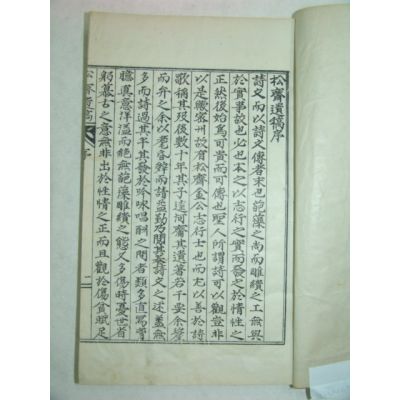 松齋遺稿序
詩文而以詩文傳者末也葩藻之尚而雕繢之工無與
於實事故也必也本之以志行之實而發之於情性之
正然後始爲可貴而可傳也聖人所謂詩可以觀豈非
以是歟密州故有松齋金公志行士也而尤以善於詩
歌稱其歿後數十年其子達河齋其遺著若干要余
而弁之余以老昏辭而請益勤乃閱其
多而詩過其半其發於吟咏唱酬之間者類多直寫胷
臆眞意洋溢而絕無葩藻雕繢之態又多傷時憂世首
躬慕古之意無非出於性情之正而且觀於傷貧賦足
松齋遺稿 序